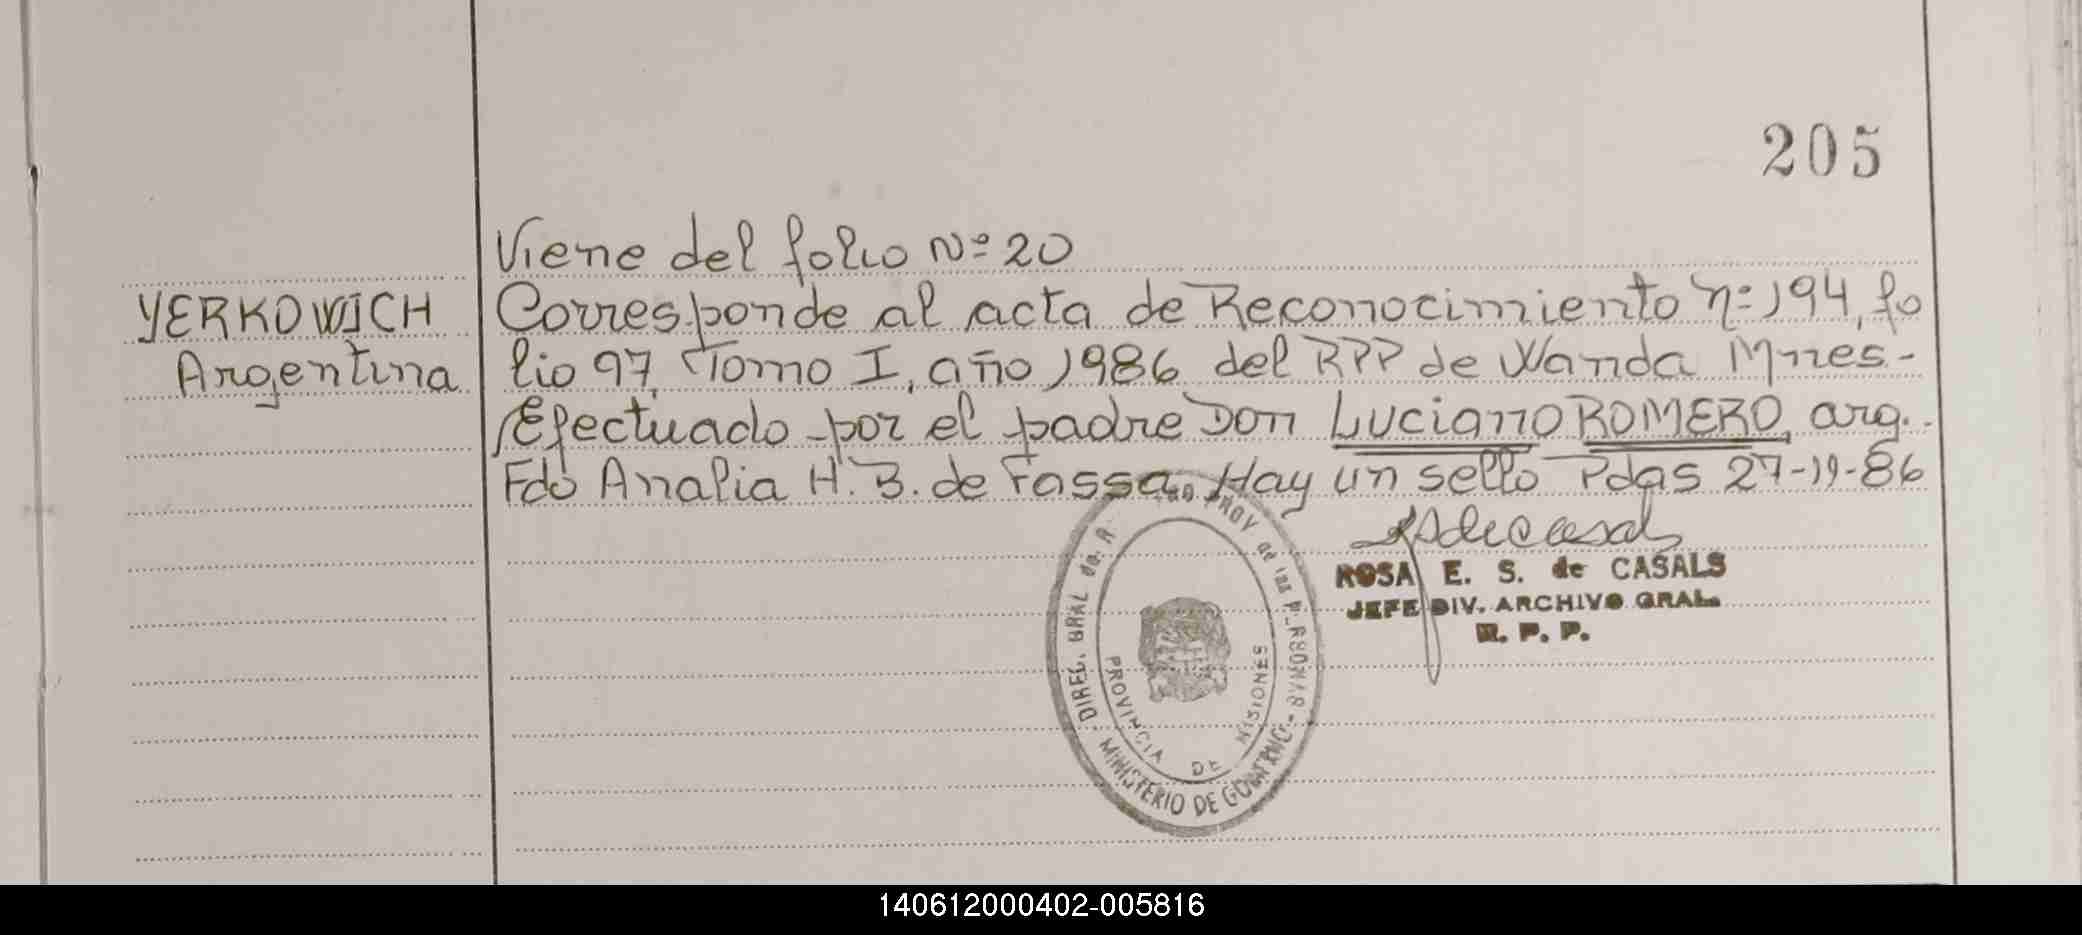 205
Viene del folio Nº 20
YERKOWICH
Argentina
Corresponde al acta de Reconocimiento nº 194, fo
lio 97, Tomo I, año 1986 del RPP de Wanda Mnes-
Efectuado por el padre Don Luciano ROMERO, arg.
Fdo Analia H. B. de Fassa. Hay un sello Pdas 27-11-86
ROSA E. S. de CASALS
JEFE DIV. ARCHIVO GRAL.
R. P. P.
DIREC. GRAL de
PROV de las PERSONAS
MINISTERIO DE GOBIERNO
PROVINCIA DE MISIONES
140612000402-005816